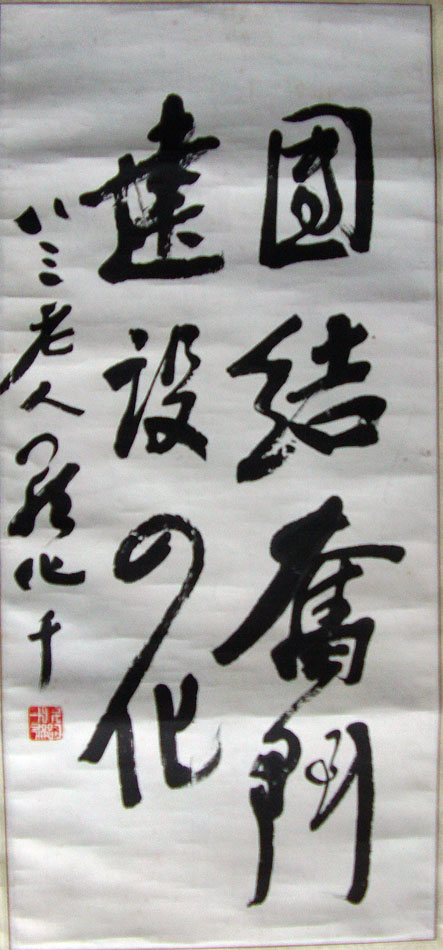 團結奮鬥
建設四化
八三老人羅化千